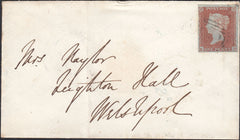 Mrs Naylor
Leighton Hall
Welshpool